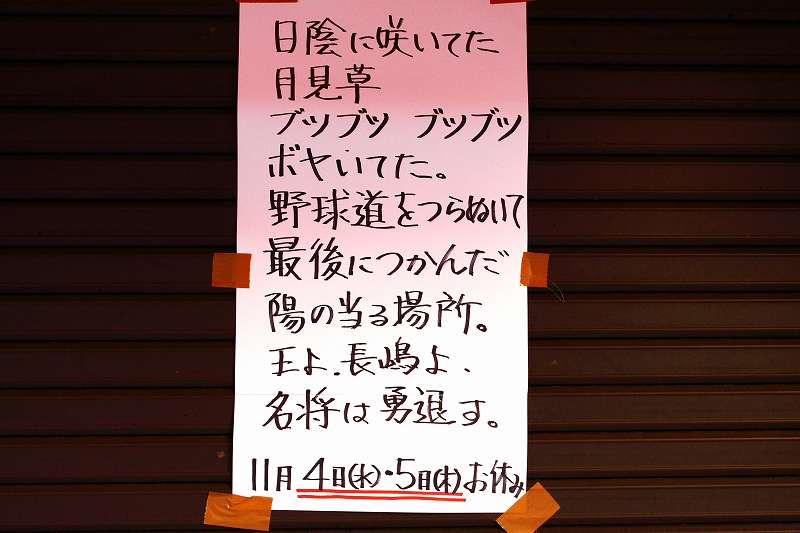 日陰に咲いてた
月見草
ブツブツ ブツブツ
ボヤいてた。
野球道をつらぬいて
最後につかんだ
陽の当る場所。
王よ、長嶋よ、
名将は勇退す。
11月4日(水)・5日(木)お休み